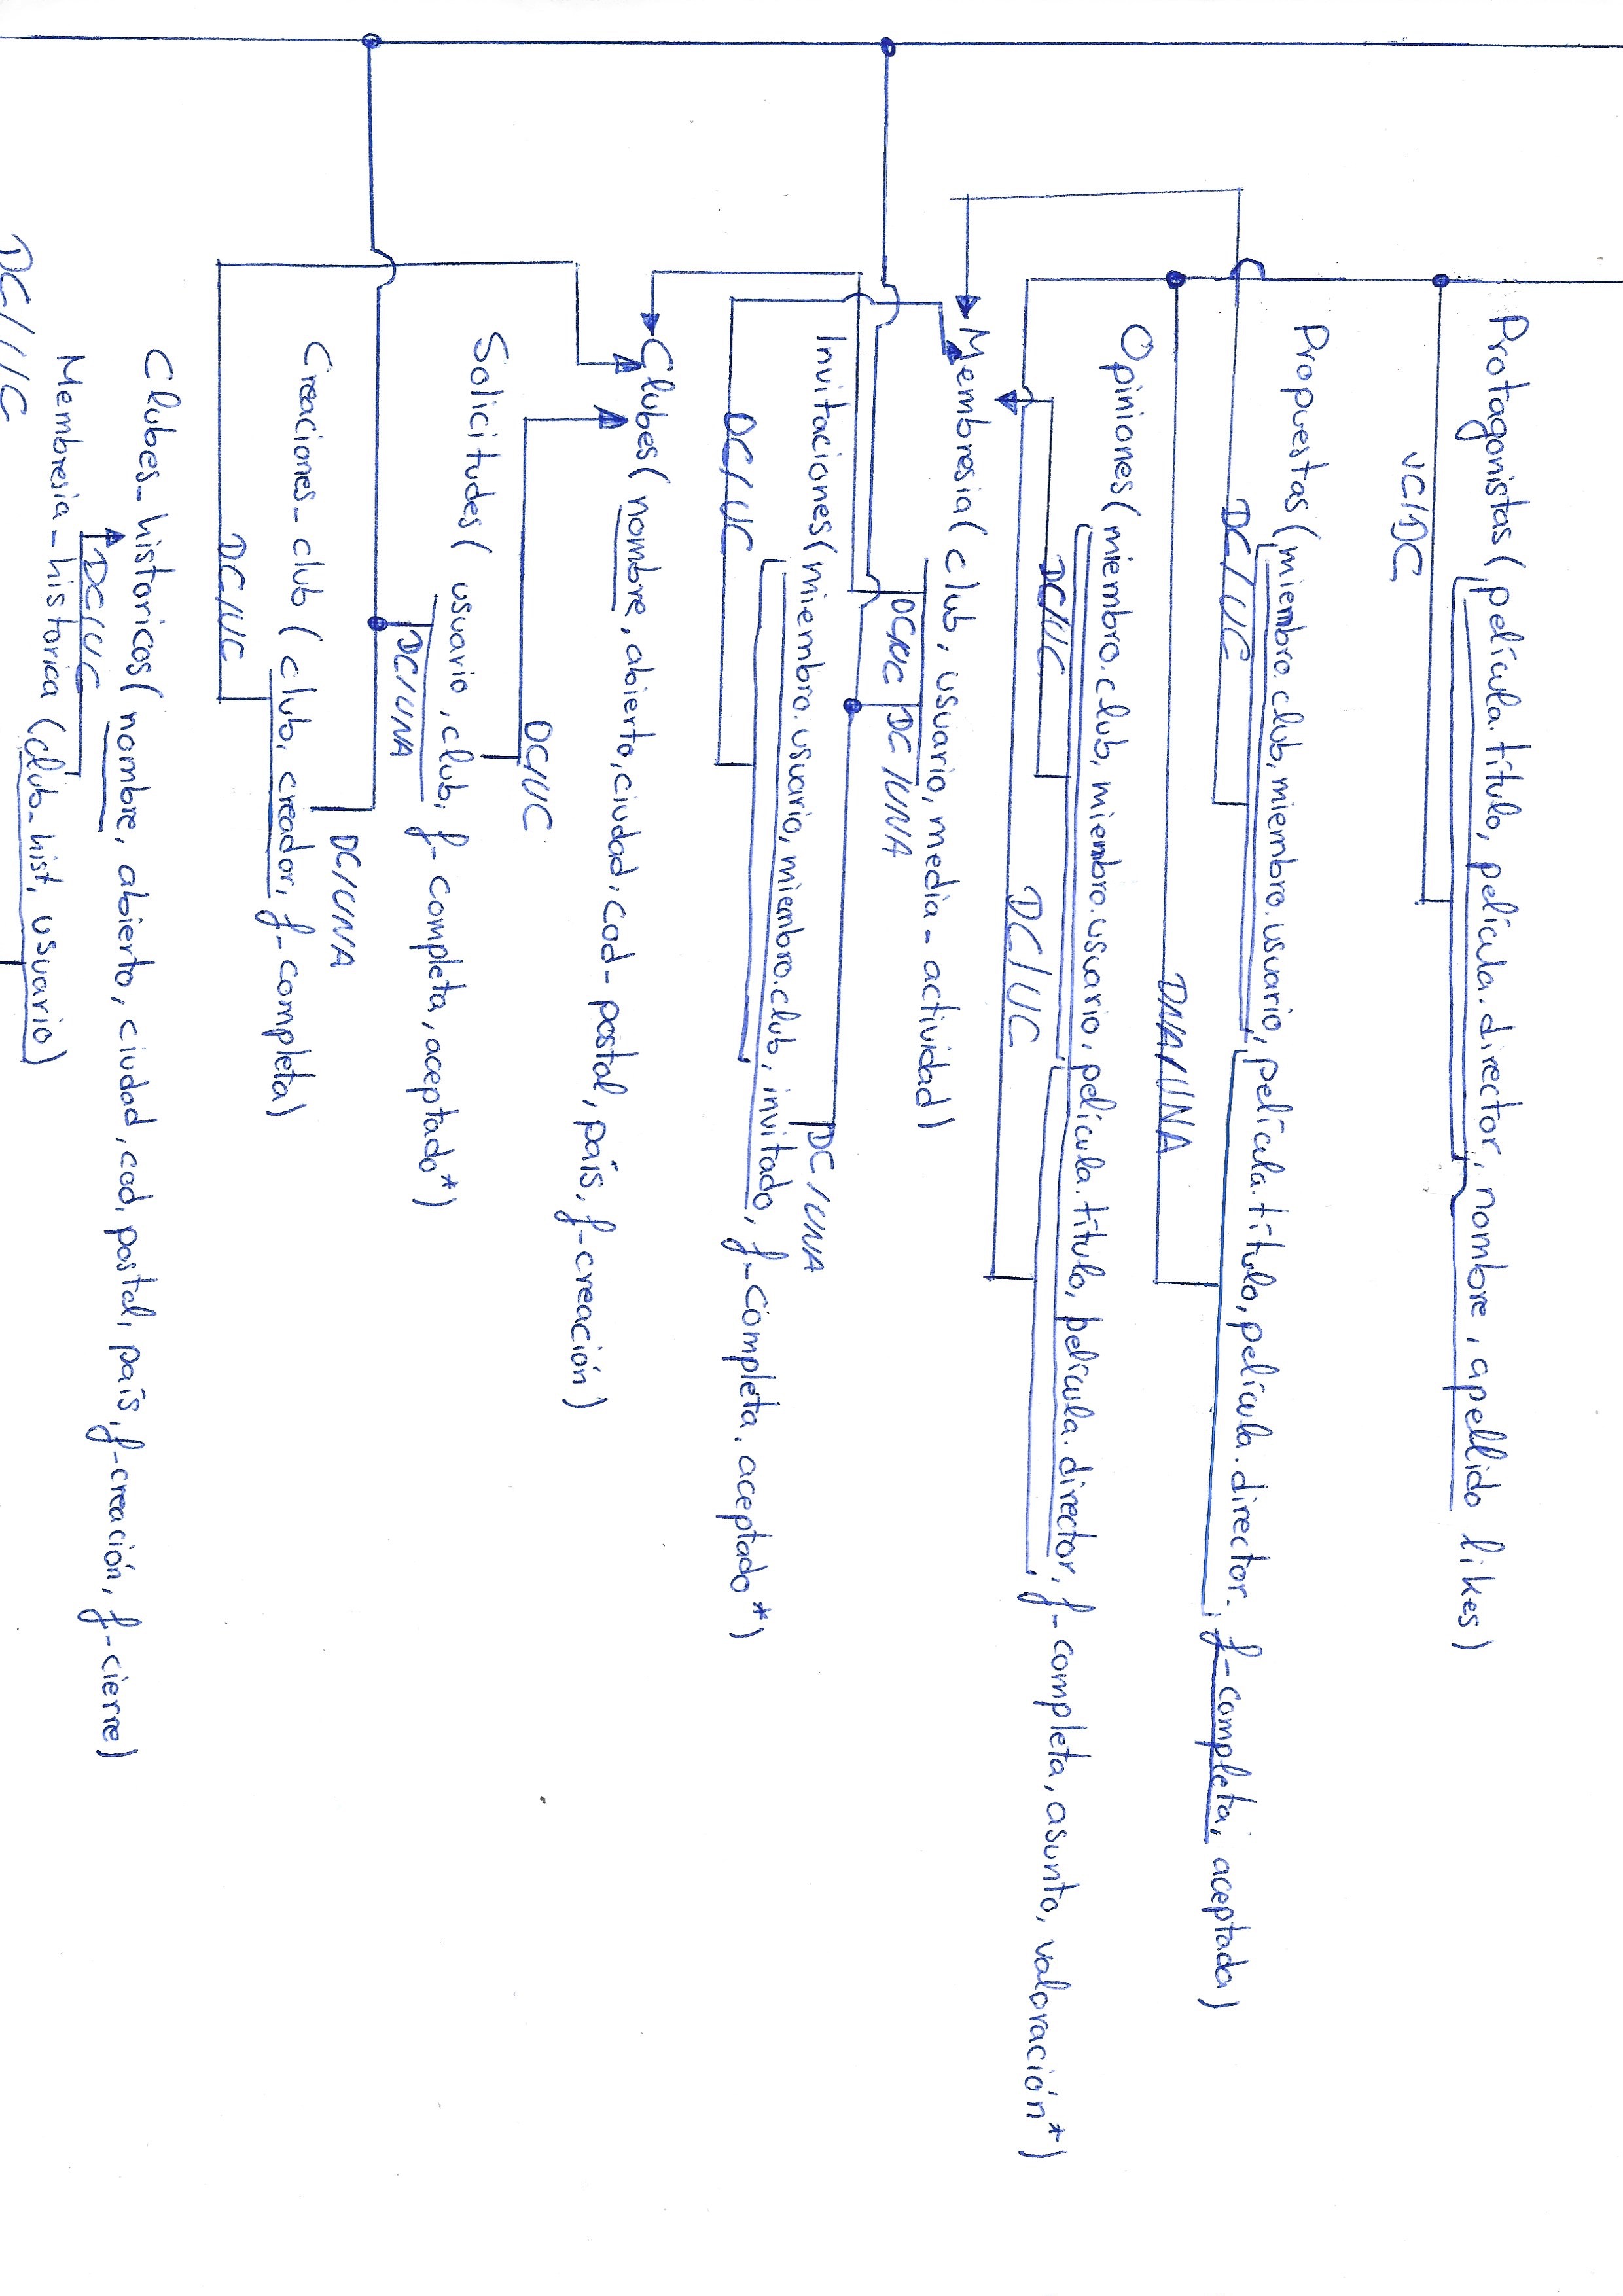 Protagonistas (película.título, película.director, nombre, apellido likes)
UC/DC
Propuestas (miembro.club, miembro.usuario, película.título, película.director, f-completa, aceptada)
DC/UC
DNA/UNA
Opiniones (miembro.club, miembro.usuario, película.título, película.director, f-completa, asunto, valoración*)
DC/UC
DC/UC
Membresia (club, usuario, media-actividad)
DC/UC DC/UNA
DC/UNA
Invitaciones (miembro.usuario, miembro.club, invitado, f-completa, aceptado*)
DC/UC
Clubes (nombre, abierto, ciudad, cod-postal, país, f-creación)
DC/UC
Solicitudes (usuario, club, f-completa, aceptado*)
DC/UNA
DC/UNA
Creaciones-club (club, creador, f-completa)
DC/UC
Clubes-historicos (nombre, abierto, ciudad, cod, postal, país, f-creación, f-cierre)
DC/UC
Membresia-historica (club-hist, usuario)
DC/UC